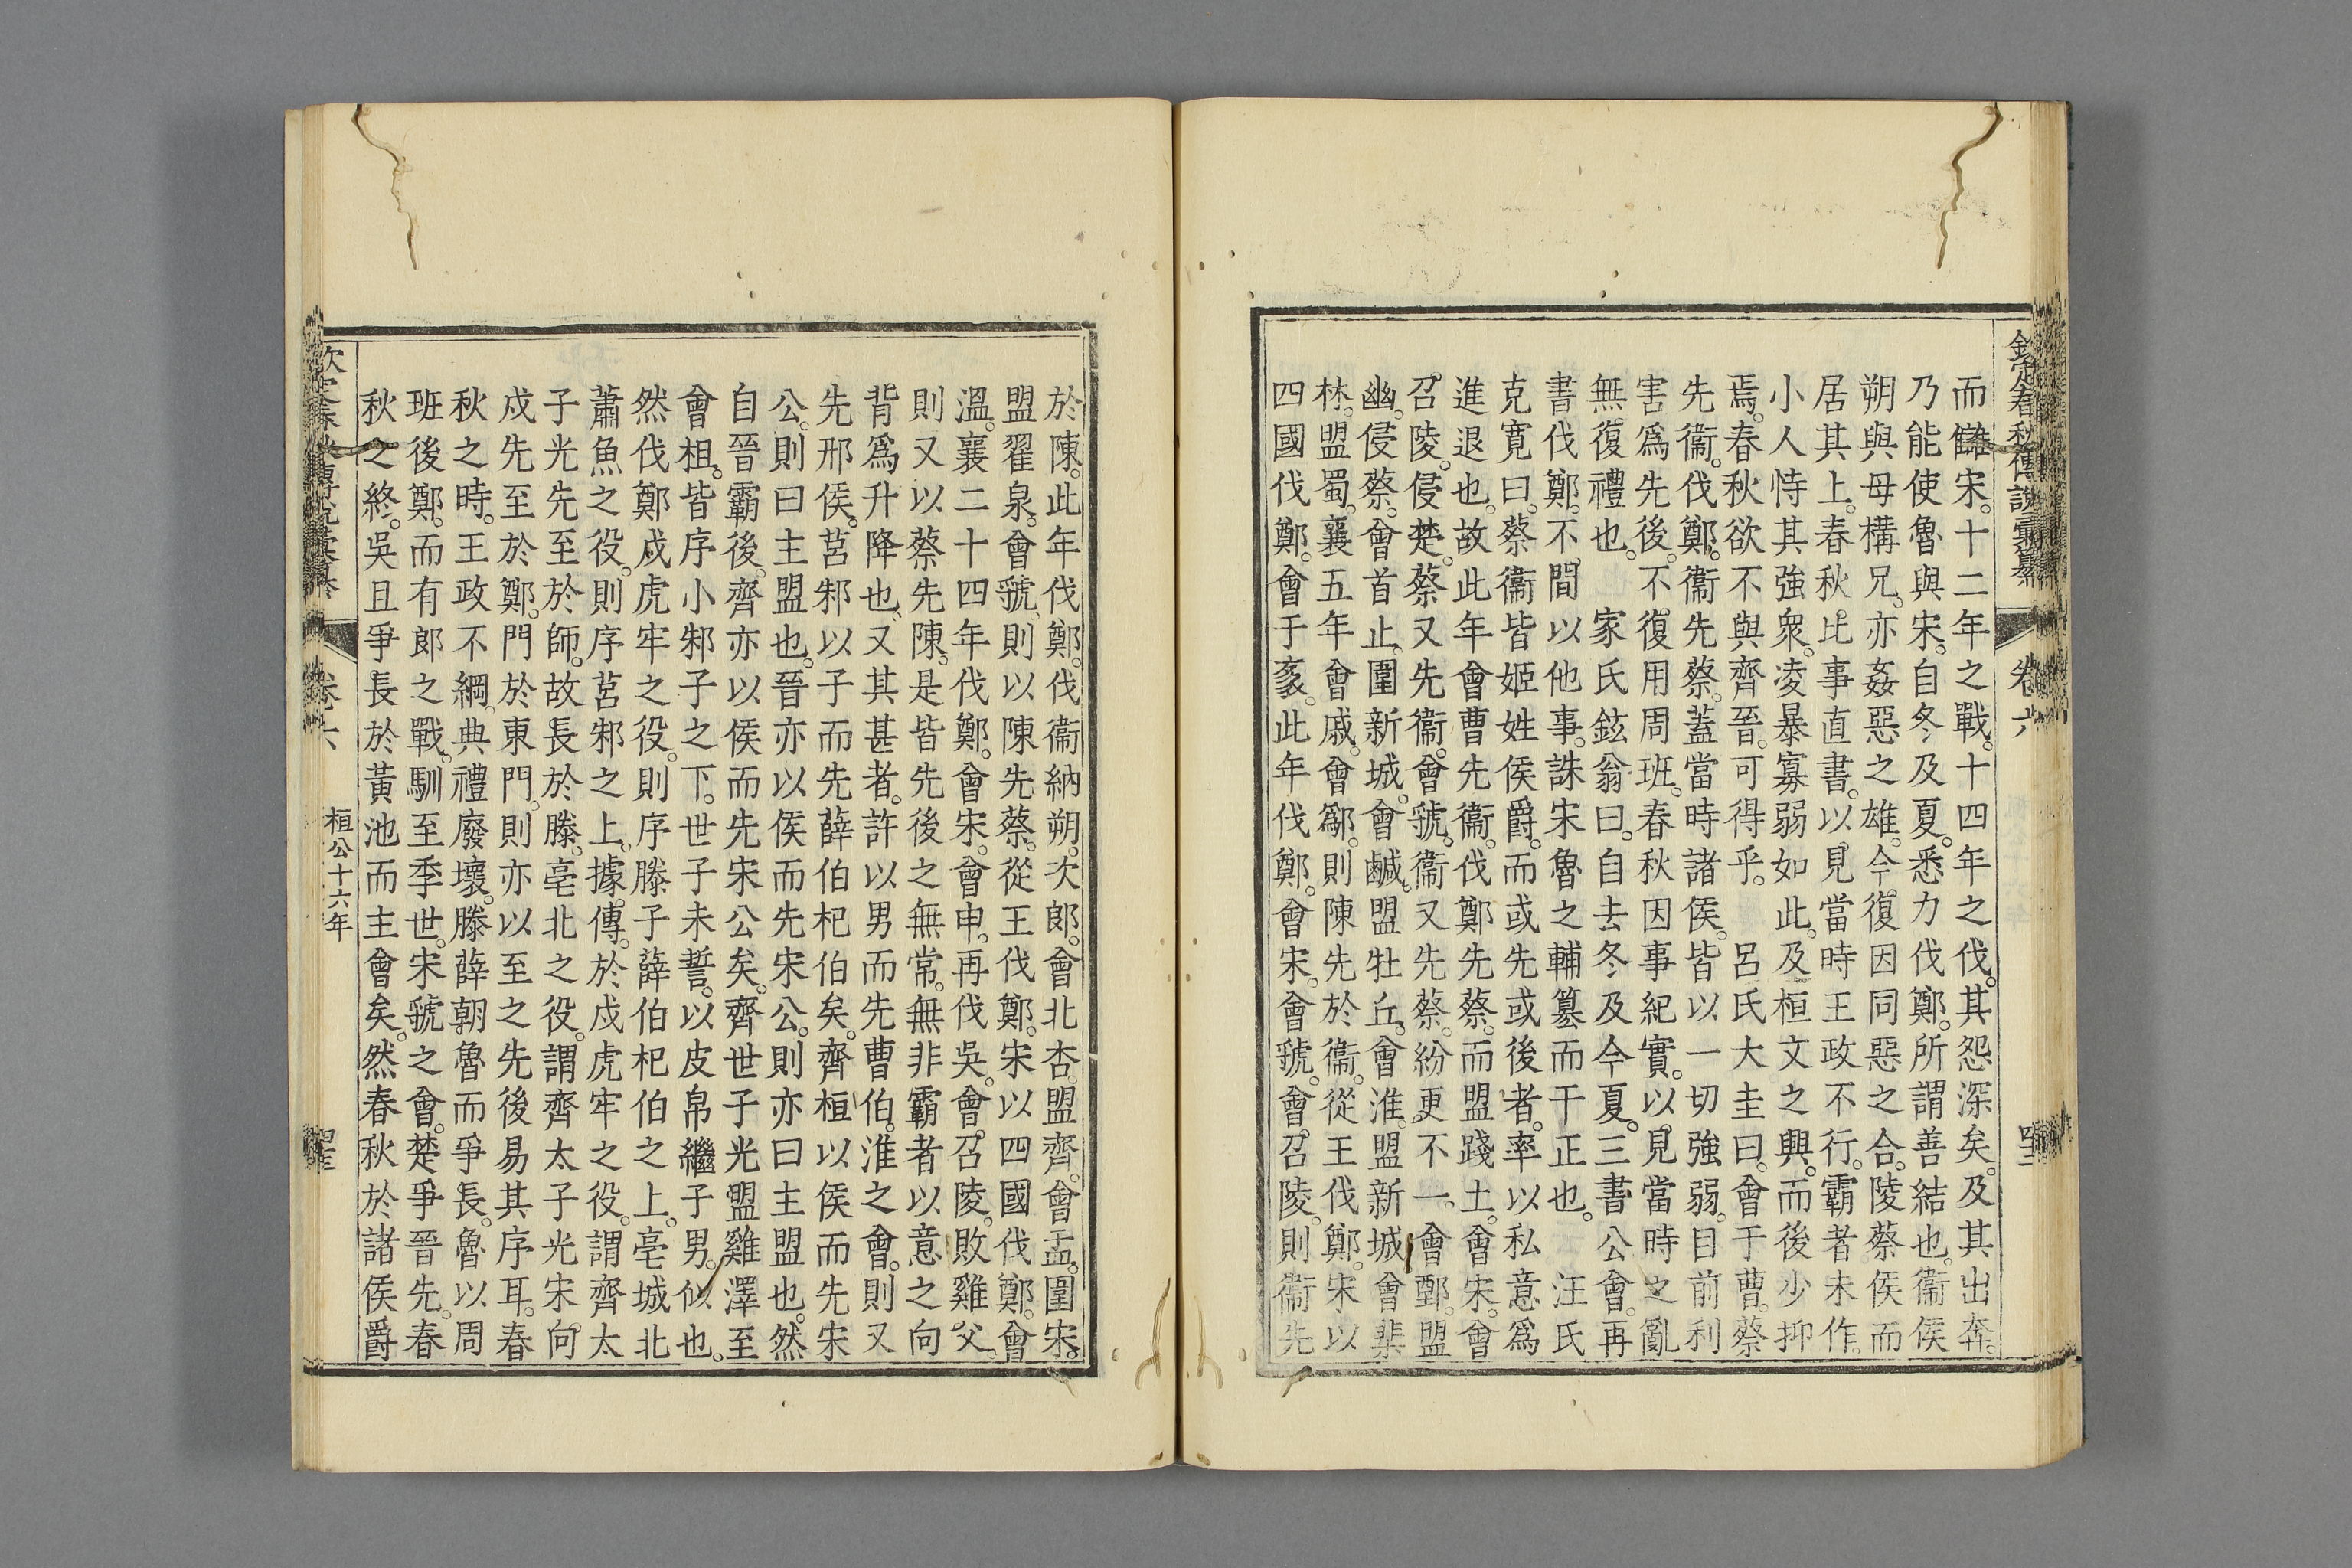 欽定春秋傳說彙纂 卷六
而讎宋。十二年之戰。十四年之伐。其怨深矣。及其出奔。
乃能使魯與宋。自冬及夏。悉力伐鄭。所謂善結也。衞侯
朔與母構兄。亦姦惡之雄。今復因同惡之合。陵蔡侯而
居其上。春秋。比事直書。以見當時王政不行。霸者未作。
小人恃其強衆。凌暴寡弱如此。及桓文之興。而後少抑
焉。春秋欲不與齊晉。可得乎。 呂氏大圭曰。會于曹。蔡
先衞。伐鄭。衞先蔡。蓋當時諸侯。皆以一切強弱。目前利
害爲先後。不復用周班。春秋因事紀實。以見當時之亂
無復禮也。 家氏鉉翁曰。自去冬及今夏。三書公會。再
書伐鄭。不間以他事。誅宋魯之輔篡而干正也。 汪氏
克寬曰。蔡衞皆姬姓侯爵。而或先或後者。率以私意爲
進退也。故此年會曹先衞。伐鄭先蔡。而盟踐土。會宋。會
召陵。侵楚。蔡又先衞。會虢。衞又先蔡。紛更不一。會鄄。盟
幽。侵蔡。會首止。圍新城。會鹹。盟牡丘。會淮。盟新城會棐
林。盟蜀。襄五年會戚。會鄬。則陳先於衞。從王伐鄭。宋以
四國伐鄭。會于袲。此年伐鄭。會宋。會虢。會召陵。則衞先
於陳。此年伐鄭。伐衞納朔。次郎。會北杏。盟齊。會盂。圍宋。
盟翟泉。會虢。則以陳先蔡。從王伐鄭。宋以四國伐鄭。會
溫。襄二十四年伐鄭。會宋。會申。再伐吳。會召陵。敗雞父。
則又以蔡先陳。是皆先後之無常。無非霸者以意之向
背爲升降也。又其甚者。許以男而先曹伯。淮之會。則又
先邢侯。莒邾以子而先薛伯杞伯矣。齊桓以侯而先宋
公。則曰主盟也。晉亦以侯而先宋公。則亦曰主盟也。然
自晉霸後。齊亦以侯而先宋公矣。齊世子光盟雞澤至
會柤。皆序小邾子之下。世子未誓。以皮帛繼子男。似也。
然伐鄭戍虎牢之役。則序滕子薛伯杞伯之上。亳城北
蕭魚之役。則序莒邾之上。據傳。於戍虎牢之役。謂齊太
子光先至於師。故長於滕。亳北之役。謂齊太子光宋向
戍先至於鄭。門於東門。則亦以至之先後易其序耳。春
秋之時。王政不綱。典禮廢壞。滕薛朝魯而爭長。魯以周
班後鄭。而有郎之戰。馴至季世。宋虢之會。楚爭晉先。春
秋之終。吳且爭長於黃池而主會矣。然春秋於諸侯爵
卷六 桓公十六年